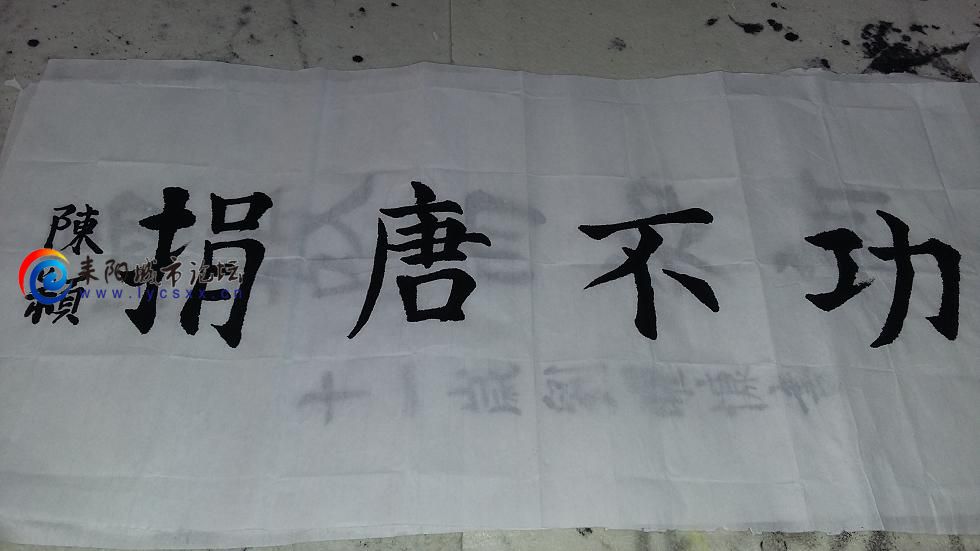 功不唐捐
陳
耒阳城市论坛
www.lycsxx.cn